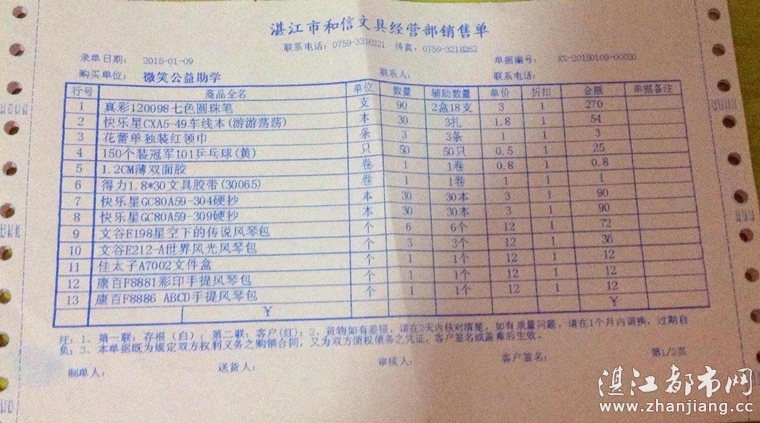 湛江市和信文具经营部销售单
联系电话：0759-3316221 传真：0759-3218262
录单日期： 2015-01-09 单据编号： XS-20150109-00020
购买单位： 微笑公益助学 联系人： 联系电话：
行号 商品全名 单位 数量 辅助数量 单价 折扣 金额 单据备注
1 真彩120098七色圆珠笔 支 90 2盒18支 3 1 270
2 快乐星CXA5-49车线本(游游荡荡) 本 30 3扎 1.8 1 54
3 花蕾单独装红领巾 条 3 3条 1 1 3
4 150个装冠军101乒乓球(黄) 只 50 50只 0.5 1 25
5 1.2CM薄双面胶 卷 1 1卷 0.8 1 0.8
6 得力1.8*30文具胶带(30065) 卷 1 1卷 1 1 1
7 快乐星GC80A59-304硬抄 本 30 30本 3 1 90
8 快乐星GC80A59-309硬抄 本 30 30本 3 1 90
9 文谷E198星空下的传说风琴包 个 6 6个 12 1 72
10 文谷E212-A世界风光风琴包 个 3 3个 12 1 36
11 佳太子A7002文件盒 个 1 1个 12 1 12
12 康百F8881彩印手提风琴包 个 1 1个 12 1 12
13 康百F8886 ABCD手提风琴包 个 1 1个 12 1 12
¥ ¥
注：1、第一联：存根（白）；第二联：客户(红)；2、货物如有差错，请在2天内核对清楚，如有质量问题，请在1个月内调换，过期自
负；3、本单据既为规定双方权利义务之购销合同，又为双方债权债务之凭证，客户签名或盖幕后生效。
制单人： 送货人： 审核人： 客户签名： 第1/2页
湛江都市网
www.zhanjiang.cc